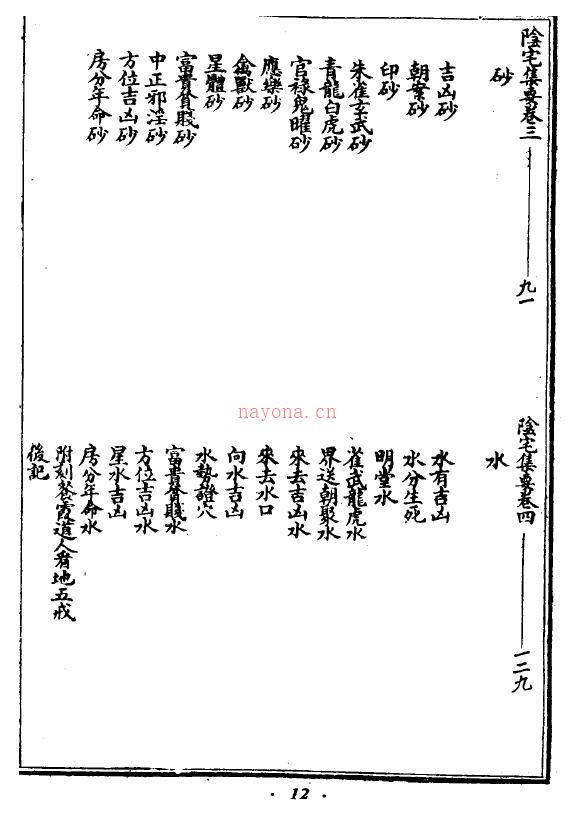 陰宅集要卷三——九一
砂
吉凶砂
朝案砂
印砂
朱雀玄武砂
青龍白虎砂
官祿鬼曜砂
應樂砂
禽獸砂
星體砂
富貴貧賤砂
中正邪淫砂
方位吉凶砂
房分年命砂
陰宅集要卷四——一二九
水
水有吉凶
水分生死
明堂水
雀武龍虎水
界送朝聚水
來去吉凶水
來去水口
向水吉凶
水勢證穴
富貴貧賤水
方位吉凶水
星水吉凶
房分年命水
附刻餐霞道人看地五戒
後記
nayona.cn
· 12 ·